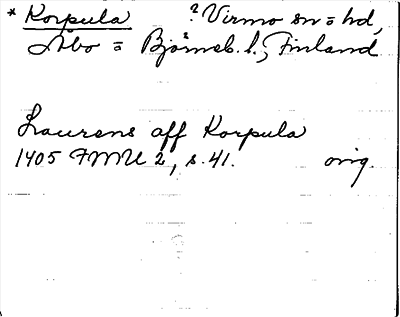 * Korpula ? Virmo sn = hd,
Åbo = Björneb. l., Finland
Laurens aff Korpula
1405 FMU 2, s. 41. orig.